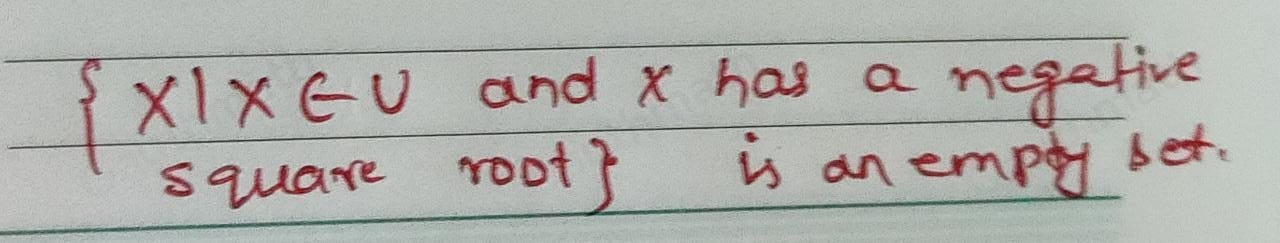 { X | X ∈ U and x has a negative
square root} is an empty set.